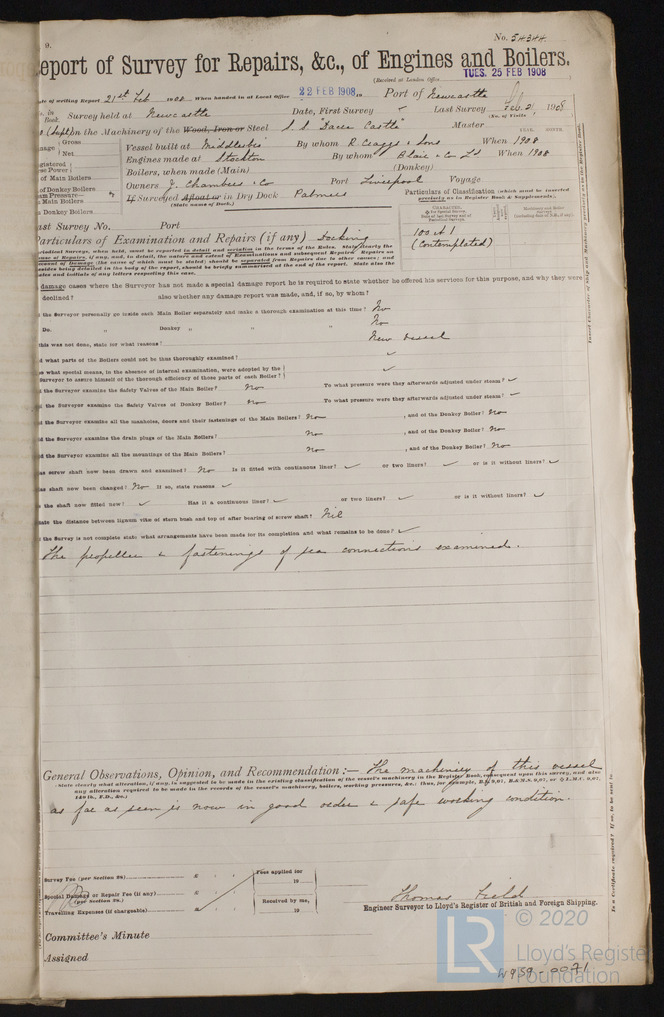 No. 54344
eport of Survey for Repairs, &c., of Engines and Boilers.
(Received at London Office TUES. 25 FEB 1908
ate of writing Report 21st Feb 1908 When handed in at Local Office 22 FEB 1908 Port of Newcastle
Survey held at Newcastle Date, First Survey ✓ Last Survey Feb. 21 1908
Book. (No. of Visits
(Sept) on the Machinery of the Wood, Iron or Steel S.S. "Dacre Castle" Master
YEAR. MONTH.
Gross Vessel built at Middlesbro By whom R Craggs & Sons When 1908
Net Engines made at Stockton By whom Blair & Co Ld When 1908
egistered
se Power Boilers, when made (Main) (Donkey)
of Main Boilers
Owners J. Chambers & Co Port Liverpool Voyage
of Donkey Boilers
am Pressure—
n Main Boilers If Surveyed Afloat or in Dry Dock Palmers
(State name of Dock.)
n Donkey Boilers
Particulars of Classification (which must be inserted
precisely as in Register Book & Supplements).
CHARACTER.
100 A 1
(Contemplated)
ast Survey No. Port
Particulars of Examination and Repairs (if any) Docking
damage cases where the Surveyor has not made a special damage report he is required to state whether he offered his services for this purpose, and why they were
declined? also whether any damage report was made, and, if so, by whom?
the Surveyor personally go inside each Main Boiler separately and make a thorough examination at this time? No
Do. „ Donkey „ „ „ No
this was not done, state for what reasons? New vessel
d what parts of the Boilers could not be thoroughly examined? ✓
what special means, in the absence of internal examination, were adopted by the
Surveyor to assure himself of the thorough efficiency of those parts of each Boiler? ✓
d the Surveyor examine the Safety Valves of the Main Boiler? No To what pressure were they afterwards adjusted under steam? ✓
d the Surveyor examine the Safety Valves of Donkey Boiler? No To what pressure were they afterwards adjusted under steam? ✓
d the Surveyor examine all the manholes, doors and their fastenings of the Main Boilers? No , and of the Donkey Boiler? No
d the Surveyor examine the drain plugs of the Main Boilers? No , and of the Donkey Boiler? No
d the Surveyor examine all the mountings of the Main Boilers? No , and of the Donkey Boiler? No
as screw shaft now been drawn and examined? No Is it fitted with continuous liner? ✓ or two liners? ✓ or is it without liners? ✓
as shaft now been changed? No If so, state reasons ✓
the shaft now fitted new? ✓ Has it a continuous liner? ✓ or two liners? ✓ or is it without liners? ✓
ate the distance between lignum vitæ of stern bush and top of after bearing of screw shaft? Nil
the Survey is not complete state what arrangements have been made for its completion and what remains to be done? ✓
The propeller & fastenings of sea connections examined.
General Observations, Opinion, and Recommendation:— The machinery of this vessel
(State clearly what alteration, if any, is suggested to be made in the existing classification of the vessel's machinery in the Register Book, consequent upon this survey, and also
any alteration required to be made in the records of the vessel's machinery, boilers, working pressures, &c.; thus, for example,
as far as seen is now in good order & safe working condition.
Survey Fee (per Section 28) £ : :
Fees applied for
19
Special Damage or Repair Fee (if any) £ : :
(per Section 28.)
Received by me,
Travelling Expenses (if chargeable) £ : :
19
Thomas Field
Engineer Surveyor to Lloyd's Register of British and Foreign Shipping.
Committee's Minute
Assigned
© 2020
LR
Lloyd's Register
Foundation
W959-0071